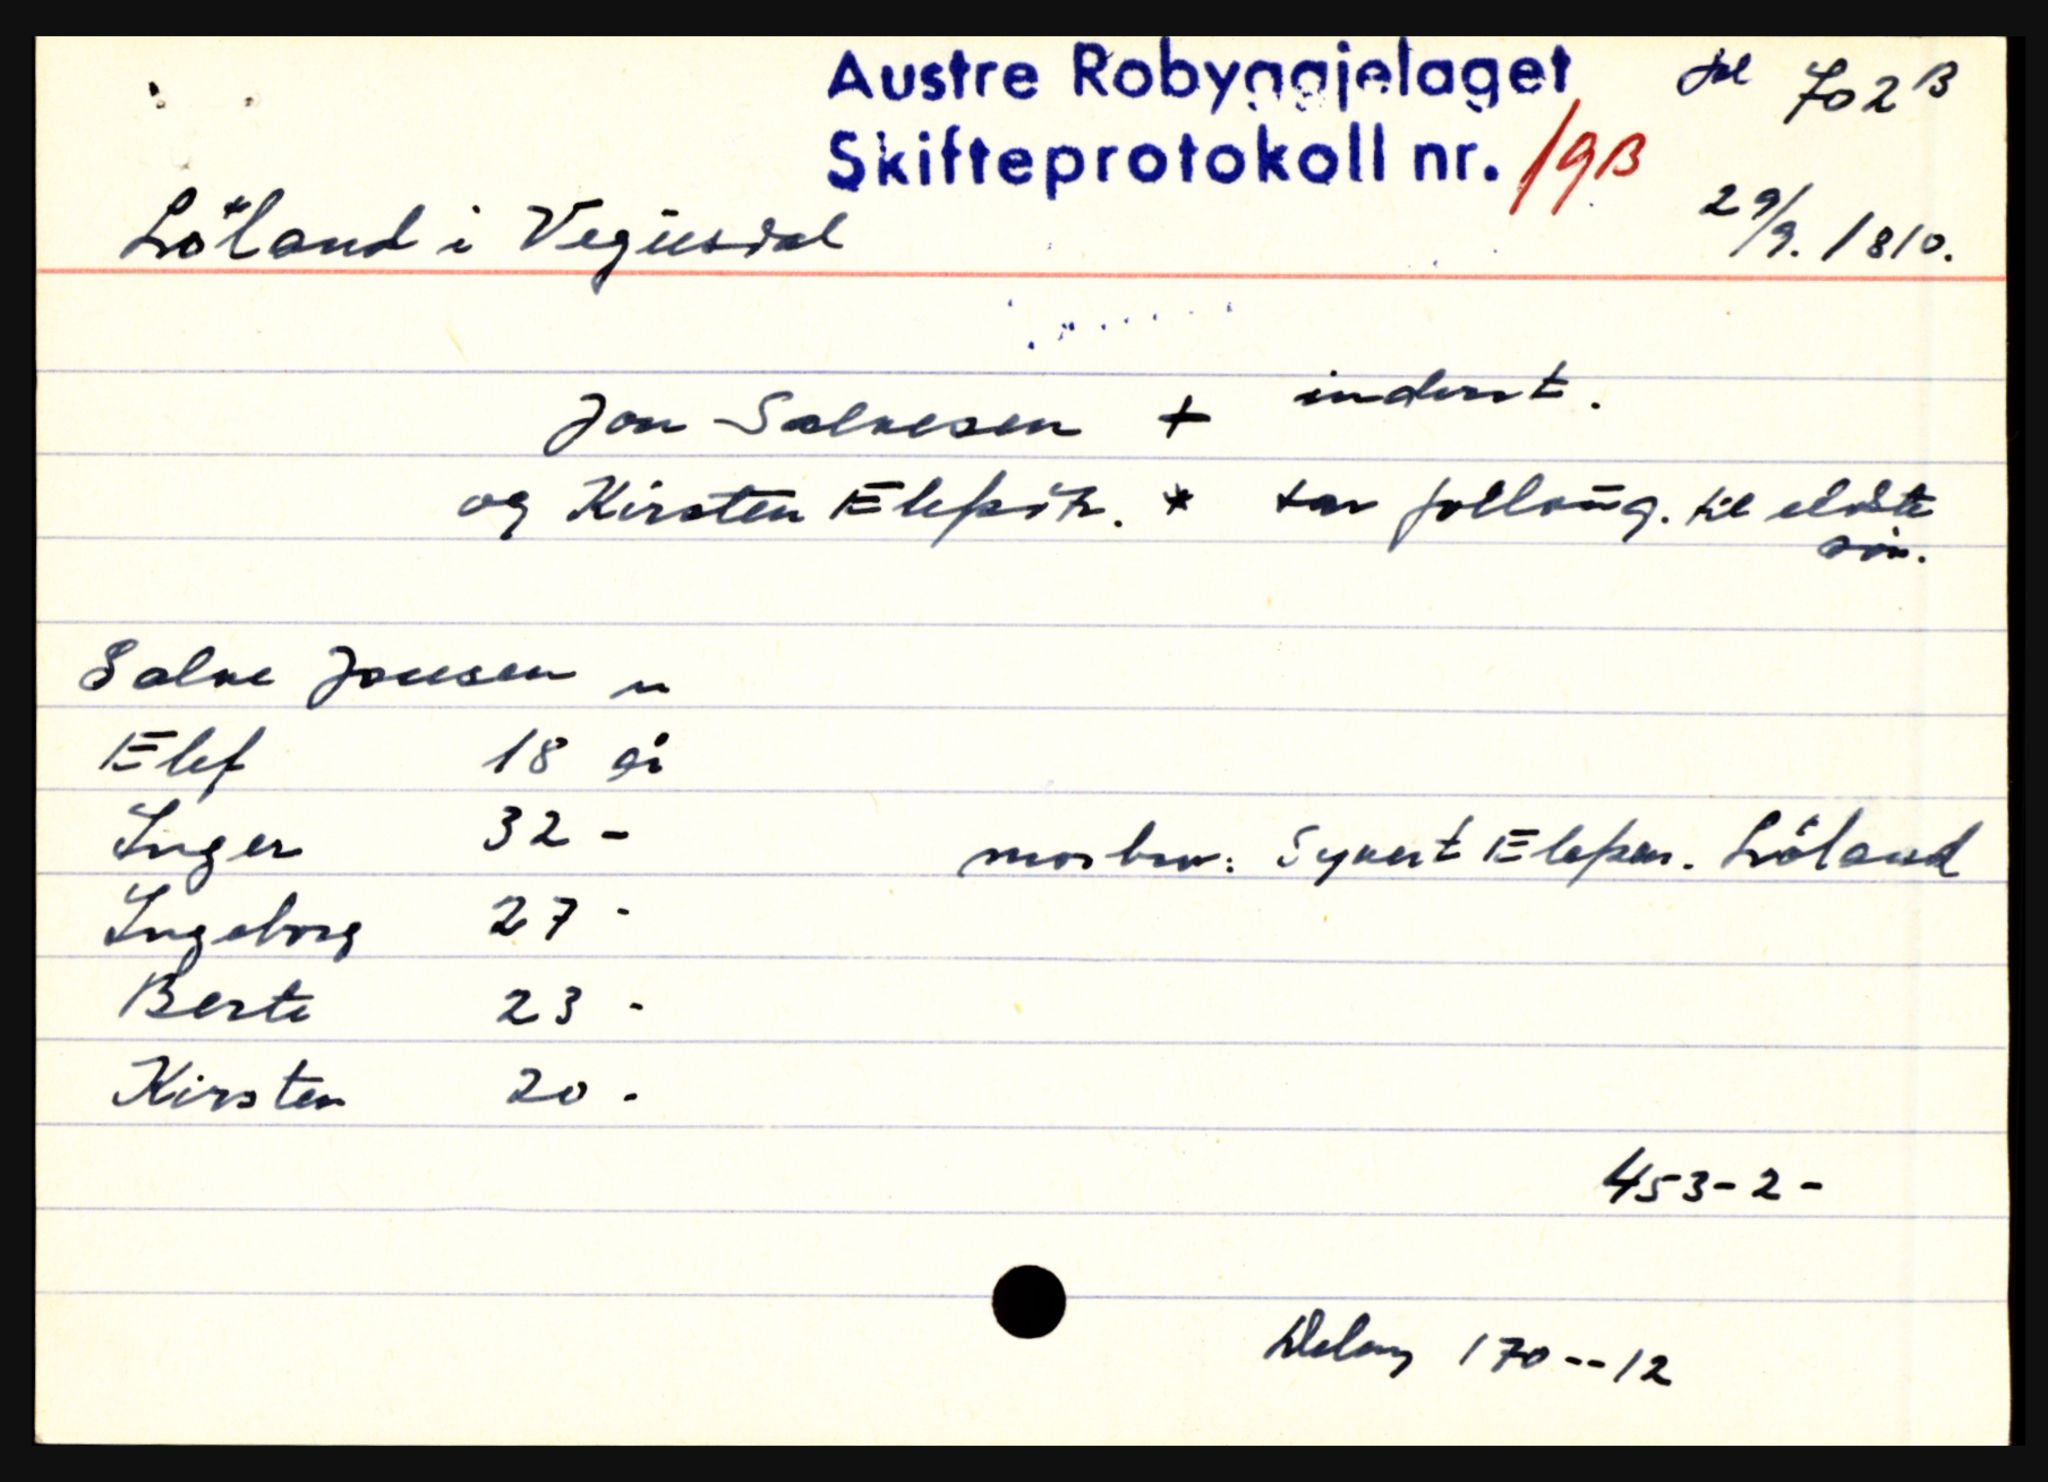 Austre Robyggjelaget fol 702 B
Skifteprotokoll nr. 19B
Löland i Vegusdal 29/9. 1810.
Jon Salvesen + inderst.
og Kirsten Elefsdtr. * tar follaug. til eldste
sön.
Salve Jonsen m
Elef 18 år
Inger 32 -
morbror: Syvert Elefsen. Löland
Ingeborg 27 -
Berte 23 -
Kirsten 20 -
453-2-
Deling 170--12